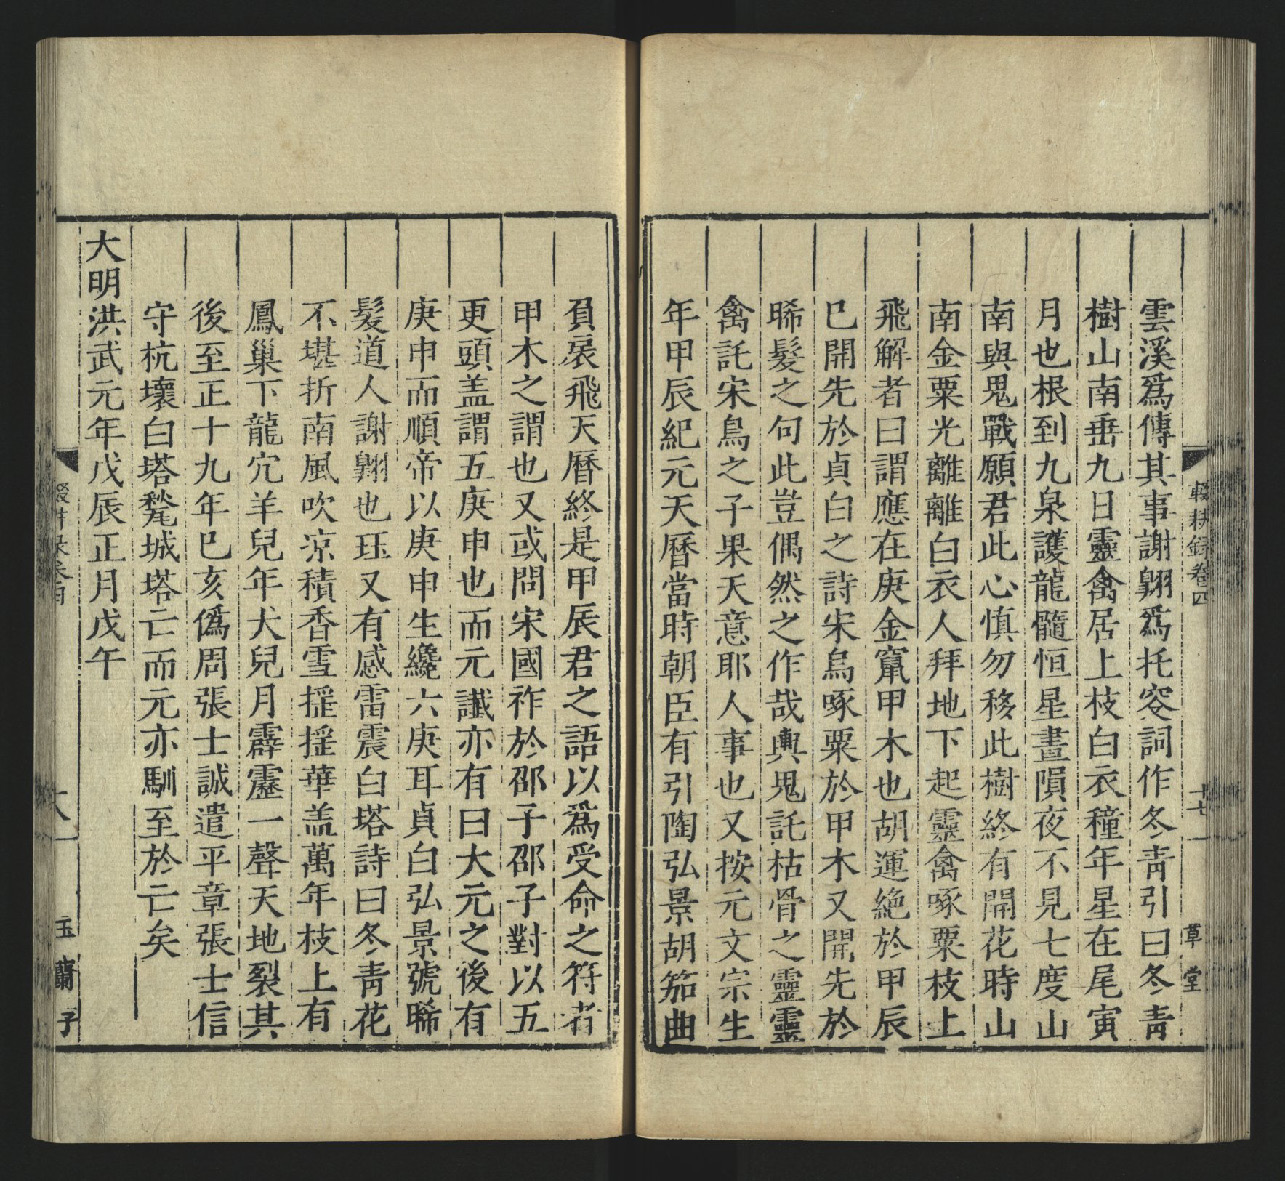 雲溪爲傳其事謝翺爲托容詞作冬青引曰冬青
樹山南垂九日靈禽居上枝白衣種年星在尾寅
月也根到九泉護龍髓恒星晝隕夜不見七度山
南與鬼戰願君此心慎勿移此樹終有開花時山
南金粟光離離白衣人拜地下起靈禽啄粟枝上
飛解者曰謂應在庚金竄甲木也胡運絶於甲辰
巳開先於貞白之詩宋鳥啄粟於甲木又開先於
晞髮之句此豈偶然之作哉輿鬼託枯骨之靈靈
禽託宋鳥之子果天意耶人事也又按元文宗生
年甲辰紀元天曆當時朝臣有引陶弘景胡笳曲
負扆飛天曆終是甲辰君之語以爲受命之符者
甲木之謂也又或問宋國祚於邵子邵子對以五
更頭盖謂五庚申也而元讖亦有曰大元之後有
庚申而順帝以庚申生纔六庚耳貞白弘景號晞
髮道人謝翺也珏又有感雷震白塔詩曰冬青花
不堪折南風吹凉積香雪揺揺華盖萬年枝上有
鳳巢下龍穴羊兒年犬兒月霹靂一聲天地裂其
後至正十九年巳亥僞周張士誠遣平章張士信
守杭壞白塔甃城塔亡而元亦馴至於亡矣
大明洪武元年戊辰正月戊午
輟耕錄卷四
十七
草堂
玉蘭